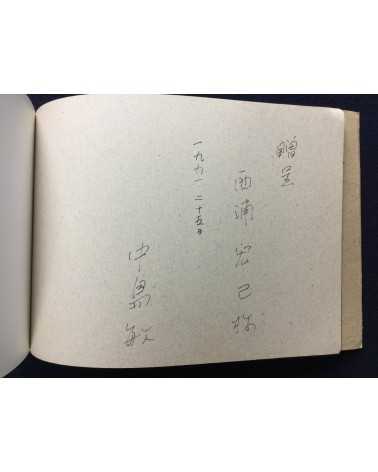 贈呈
西浦宏己様
一九九一 二十五日
中島敏